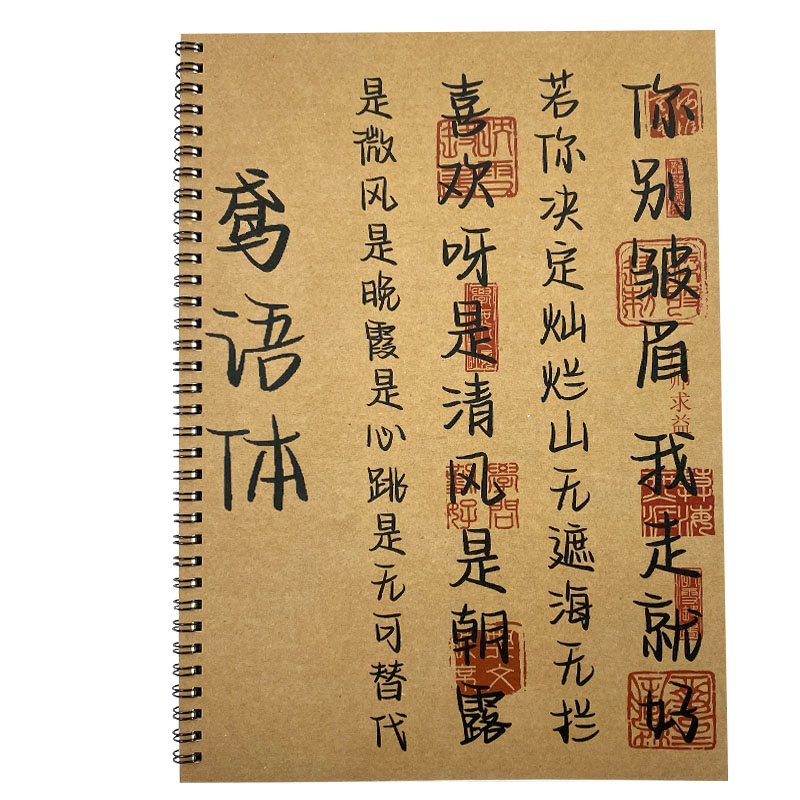 你别皱眉我走就好
若你决定灿烂山无遮海无拦
喜欢呀是清风是朝露
是微风是晚霞是心跳是无可替代
鸢语体
师求益
學問